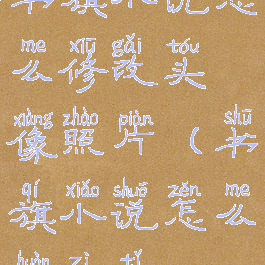 书旗小说怎
me xiū gǎi tóu
么修改头
xiàng zhào piàn shū
像照片（书
qí xiǎo shuō zěn me
旗小说怎么
huàn zì tǐ